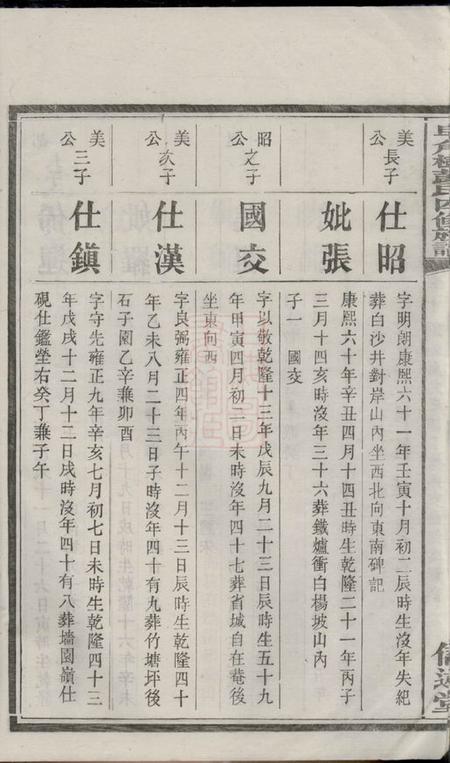 美公長子
仕昭
字明朗康熙六十一年壬寅十月初二辰時生沒年失紀
葬白沙井對岸山內坐西北向東南碑記
妣張
康熙六十年辛丑四月十四丑時生乾隆二十一年丙子
三月十四亥時沒年三十六葬鐵爐衝白楊坡山內
子一 國交
昭公之子
國交
字以敬乾隆十三年戊辰九月二十三日辰時生五十九
年甲寅四月初二日未時沒年四十七葬省城自在菴後
坐東向西
美公次子
仕漢
字良弼雍正四年丙午十二月十三日辰時生乾隆四十
年乙未八月二十三日子時沒年四十有九葬竹塘坪後
石子園乙辛兼卯酉
美公三子
仕鎮
字守先雍正九年辛亥七月初七日未時生乾隆四十三
年戊戌十二月十二日戌時沒年四十有八葬墻園嶺仕
硯仕鑑塋右癸丁兼子午